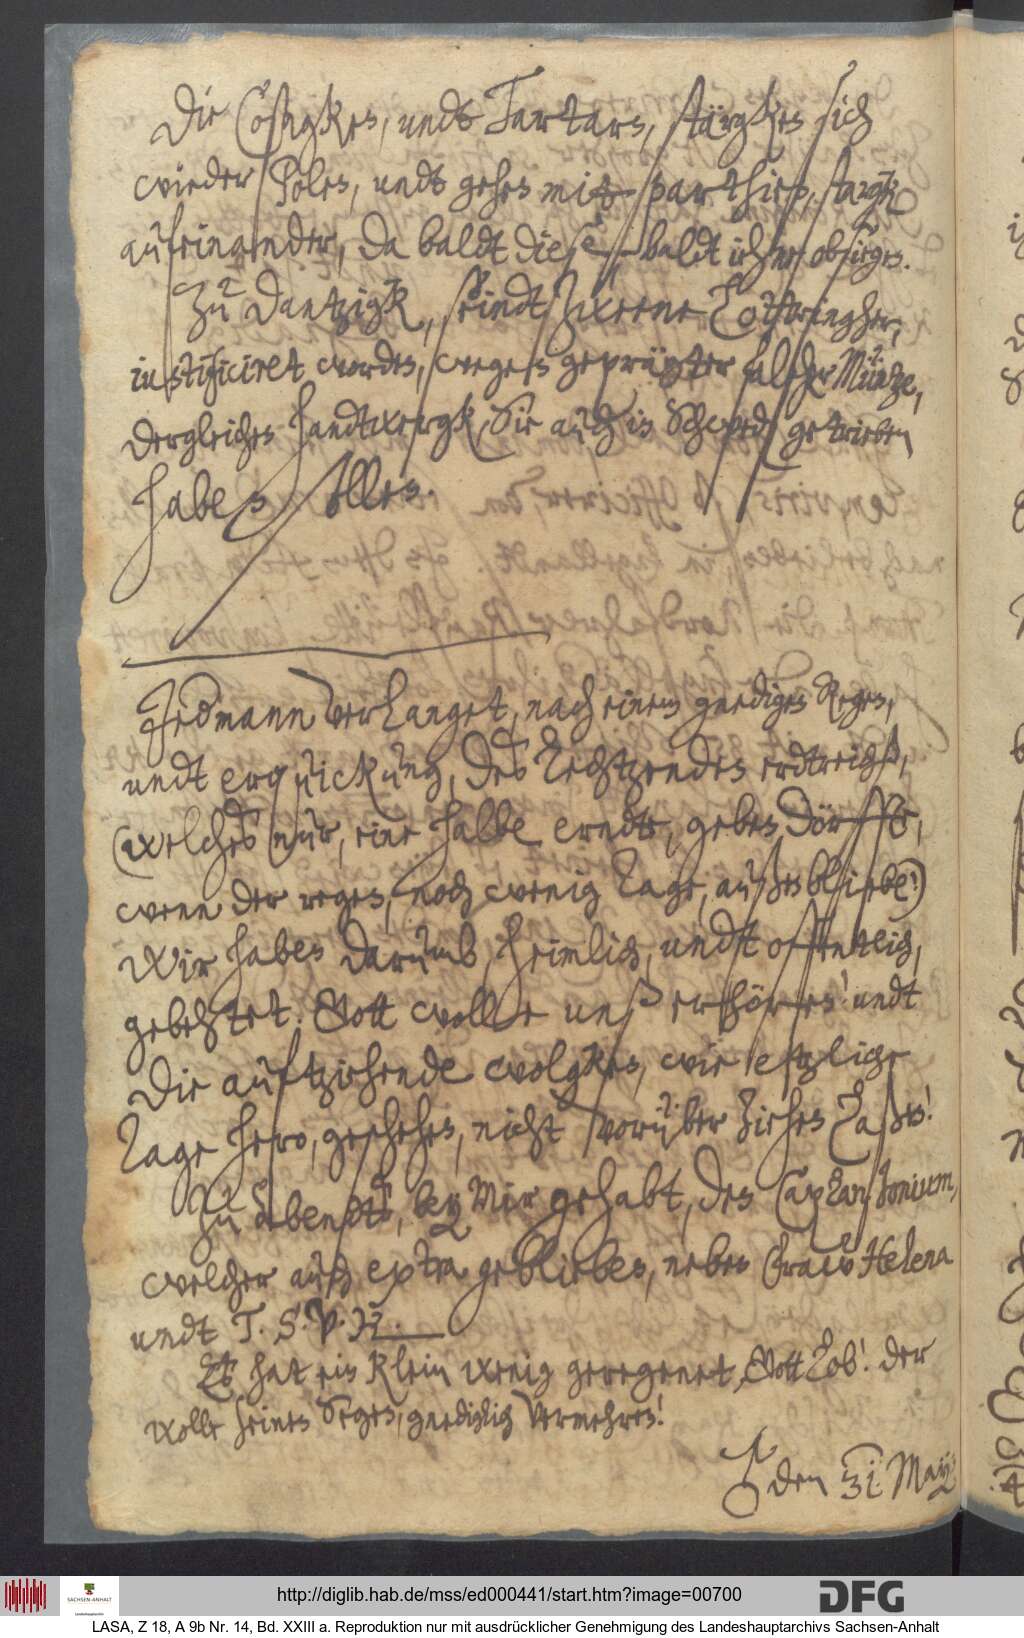 Die Cosagken, undt Tartarn, stärgken sich
wieder Polen, undt gehen mit parthien, stargk
aufeinander, da baldt diese, baldt iehne obsiegen.
Zu Dantzigk, seindt zweene Lottringher,
justificiret worden, wegen geprägter falscher Müntze,
dergleichen handtwergk, Sie auch in Schweden getrieben
haben sollen.
Iedmann verlanget, nach einem gnedigen Regen,
undt erquickung, des lechtzenden erdtreichß,
(welches nur, eine halbe erndte, geben dörffte,
wenn der regen, noch wenig Tage, außenbliebe!)
Wir haben darumb, heimlich, undt offentlich,
gebehtet. Gott wolle unß erhören! undt
die auftziehende wolgken, wie etzliche
Tage hero, geschehen, nicht vorüber ziehen laßen!
Zu abendts, bey Mir gehabt, den Caplan Jonium,
welcher auch extra geblieben, neben Fraw Helena
undt T. S. V. H.
Es hat ein klein wenig geregenet, Gott lob! der
wolle seinen Segen, gnediglich vermehren!
♄ den 31. May
http://diglib.hab.de/mss/ed000441/start.htm?image=00700
SACHSEN-ANHALT
DFG
LASA, Z 18, A 9b Nr. 14, Bd. XXIII a. Reproduktion nur mit ausdrücklicher Genehmigung des Landeshauptarchivs Sachsen-Anhalt